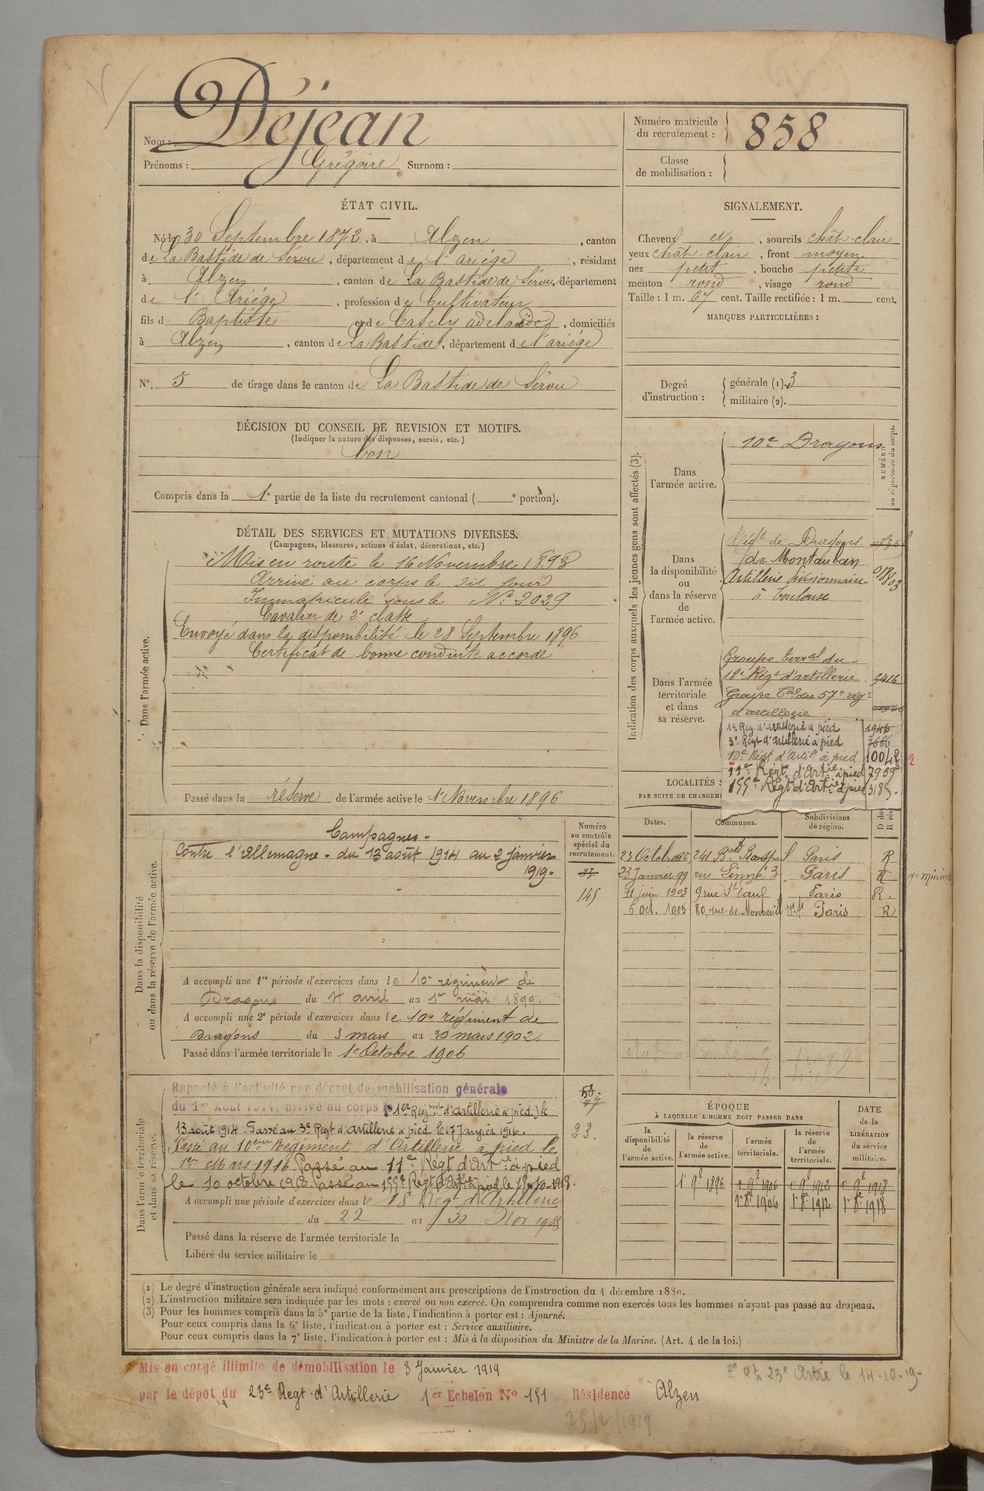 Nom : Déjean
Prénoms : Grégoire Surnom :
Numéro matricule du recrutement : 858
Classe de mobilisation :
ÉTAT CIVIL.
Né le 30 Septembre 1872, à Alzen, canton
de La Bastide de Sérou, département de l'Ariége, résidant
à Alzen, canton de La Bastide de Sérou, département
de l'Ariége, profession de Cultivateur
fils de Baptiste et de, domiciliés
à Alzen, canton de La Bastide, département de l'ariége
N° 5 de tirage dans le canton de La Bastide de Sérou
SIGNALEMENT.
Cheveux, sourcils chât-clair
yeux chât-clair, front moyen
nez petit, bouche petite
menton rond, visage rond
Taille : 1 m. 67 cent. Taille rectifiée : 1 m. cent.
MARQUES PARTICULIÈRES :
Degré d'instruction : générale (1). 3
militaire (2).
DÉCISION DU CONSEIL DE REVISION ET MOTIFS.
(Indiquer la nature des dispenses, sursis, etc.)
bon
Compris dans la 1e partie de la liste du recrutement cantonal ( e portion).
DÉTAIL DES SERVICES ET MUTATIONS DIVERSES.
(Campagnes, blessures, actions d'éclat, décorations, etc.)
Dans l'armée active.
Mis en route le 16 Novembre 1893
Arrivé au corps le dit jour
Immatriculé sous le N° 2029
Cavalier de 2e classe
Envoyé dans la disponibilité le 28 Septembre 1896
Certificat de bonne conduite accordé
Passé dans la réserve de l'armée active le 1er Novembre 1896
Indication des corps auxquels les jeunes gens sont affectés (3).
NUMÉRO au répertoire du corps.
Dans l'armée active.
10e Dragons
Dans la disponibilité ou dans la réserve de l'armée active.
Régt de Dragons
de Montauban
Artillerie divisionnaire
à Toulouse
Dans l'armée territoriale et dans sa réserve.
Groupe terral du
18e Régt d'artillerie 5416
Groupe Tal du 57e rég
d'artillerie
1er Reg d'artillerie à pied
3e Regt d'artillerie à pied
10e Régt d'Artie à pied 10042
11e Régt d'Artie à pied 7959
155e Régt d'Artie à pied 3185.
Dans la disponibilité ou dans la réserve de l'armée active.
Campagnes.
Contre l'Allemagne - du 13 août 1914 au 2 janvier
1919.
Numéro au contrôle spécial du recrutement
145
A accompli une 1re période d'exercices dans le 10e régiment de
Dragons du 4 avril au 1er mai 1899.
A accompli une 2e période d'exercices dans le 10e régiment de
Dragons du 3 mars au 30 mars 1902.
Passé dans l'armée territoriale le 1er Octobre 1906
LOCALITÉS
PAR SUITE DE CHANGEM
Dates. Communes. Subdivisions de région.
23 Octobre 96 241 Bd Paris R
23 Janvier 99 rue Linné 3 Paris R
11 juin 1903 9 rue St Paul Paris R.
5 oct. 1905 80, rue de Montreuil Paris R
Dans l'armée territoriale et dans sa réserve.
Rappelé à l'activité par décret de mobilisation générale
du 1er Août 1914, arrivé au corps le 1er Régiment d'artillerie à pied le
13 août 1914. Passé au 3e Régt d'Artillerie à pied le 17 Janvier 1916.
Passé au 10ème Régiment d'Artillerie à pied le
1er Mars 1916. Passé au 11e Régt d'Artie à pied
le 10 octobre 1918. Passé au 155e Régt d'Artie à pied le
A accompli une période d'exercices dans le 18 Régt d'Artillerie
du 22 au 30 Nov 1908
Passé dans la réserve de l'armée territoriale le
Libéré du service militaire le
47
23.
ÉPOQUE
À LAQUELLE L'HOMME DOIT PASSER DANS
la disponibilité de l'armée active. la réserve de l'armée active. l'armée territoriale. la réserve de l'armée territoriale. DATE de la LIBÉRATION du service militaire.
1er 9e 1896 1er 9e 1906 1er 9e 1912 1er 9e 1918
1er 8e 1906 1er 8e 1912 1er 8e 1918
(1) Le degré d'instruction générale sera indiqué conformément aux prescriptions de l'instruction du 4 décembre 1880.
(2) L'instruction militaire sera indiquée par les mots : exercé ou non exercé. On comprendra comme non exercés tous les hommes n'ayant pas passé au drapeau.
(3) Pour les hommes compris dans la 5e partie de la liste, l'indication à porter est : Ajourné.
Pour ceux compris dans la 6e liste, l'indication à porter est : Service auxiliaire.
Pour ceux compris dans la 7e liste, l'indication à porter est : Mis à la disposition du Ministre de la Marine. (Art. 4 de la loi.)
Mis en congé illimité de démobilisation le 3 Janvier 1919
par le dépôt du 23e Regt d'Artillerie 1er Echelon N° 151 Résidence Alzen
23e Artie le 14-10-19-